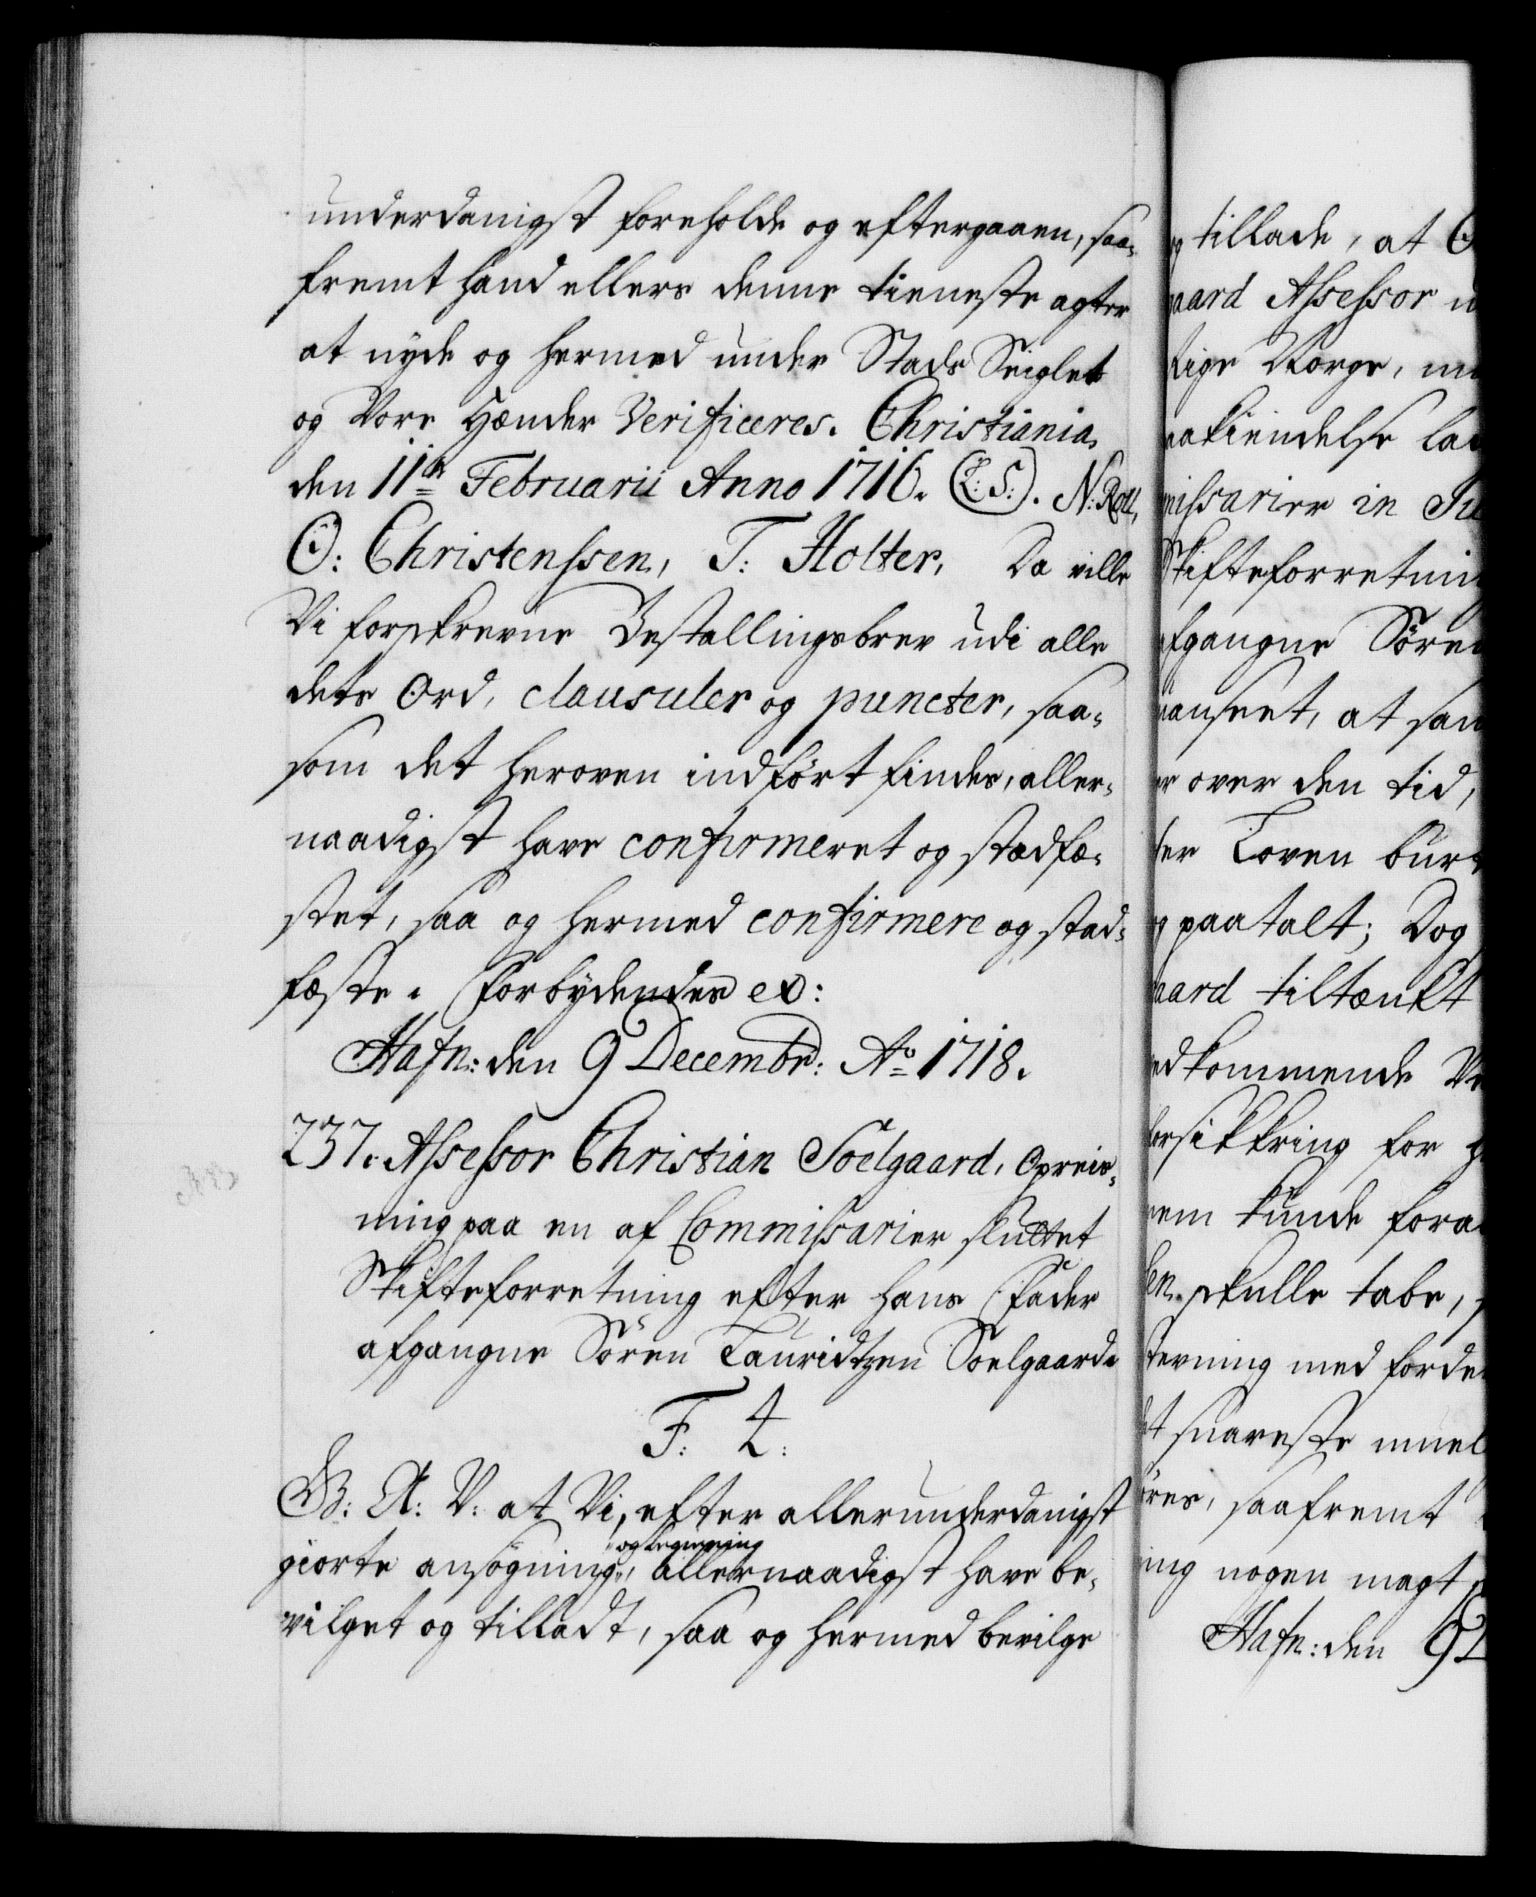 underdanigst foreholde og eftergaaen, saa-
fremt hand ellers denne tieneste agter
at nyde og hermed under Stads Seiglet
og Vore Hænder Verificeres. Christiania,
den 11te Februarii Anno 1716. (L:S:). N: Roll,
O: Christenssen, T: Holter, Da ville
Vi forskrevne Bestallingsbrev udi alle
dets Ord, clausuler og puncter, saa-
som det heroven indført findes, aller-
naadigst have confirmeret og stadfæ-
stet, saa og hermed confirmere og stad-
fæste. Forbydendes &c:
Hafn: den 9 Decembr: Ao 1718.
237. Assessor Christian Soelgaard, Opreis-
ning paa en af Commissarier sluttet
Skifteforretning efter hans Fader
afgangne Sören Lauridtzen Soelgaard
F. 4.
G: A: V: at Vi, efter allerunderdanigst
giorte ansøgning, og begiering allernaadigst have be-
vilget og tilladt, saa og hermed bevilge
tillade, at
aard Assessor
rige Norge,
akiendelse
missarier in
Skifteforretnin
fgangne Søren
anseet, at
er over den tid,
ter Loven burt
paatalt; Dog
aard tiltænkt
edkommende
forsikkring for
em kunde fora
en skulle tabe,
tevning med forde
snareste muel
øres, saafremt
ing nogen magt
Hafn: den 9